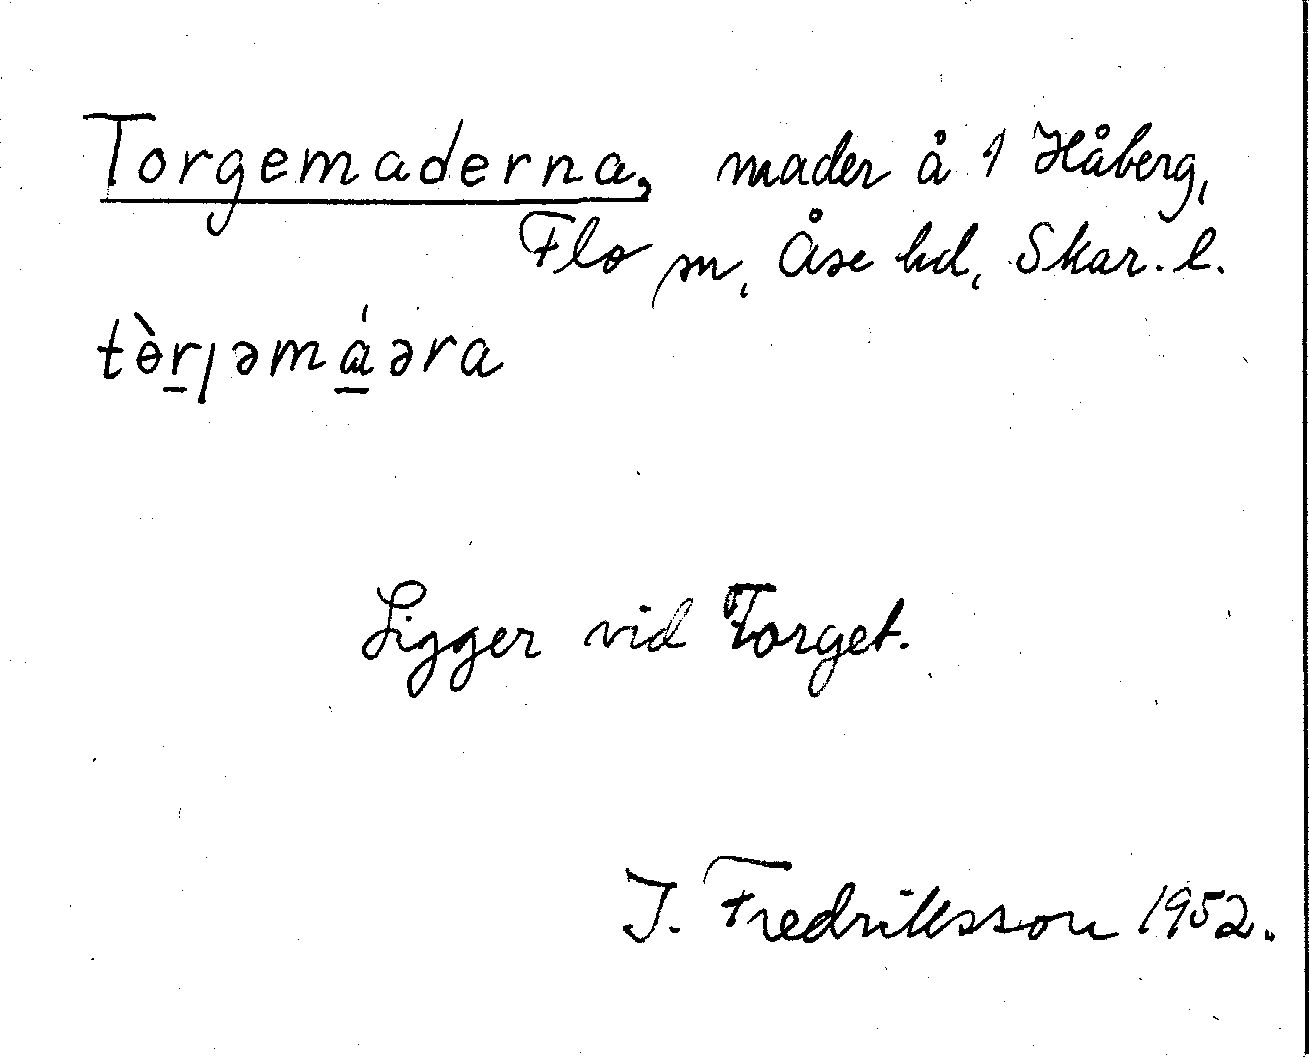 Torgemaderna, mader å 1 Håberg,
Flo sn, Åse hd, Skar. l.
tɵ̀rȷəmáəra
Ligger vid Torget.
J. Fredriksson 1952.